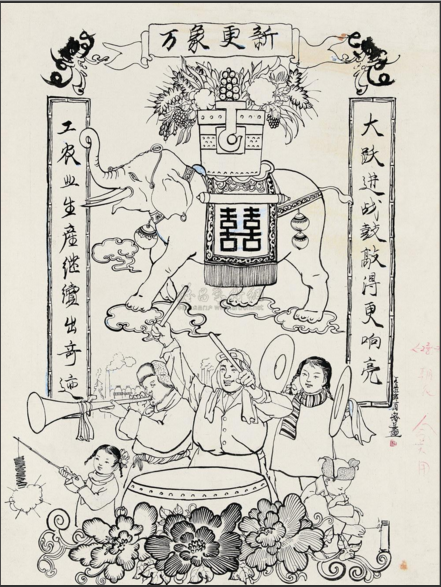 万象更新
大跃进战鼓敲得更响亮
工农业生產继續出奇迹
囍